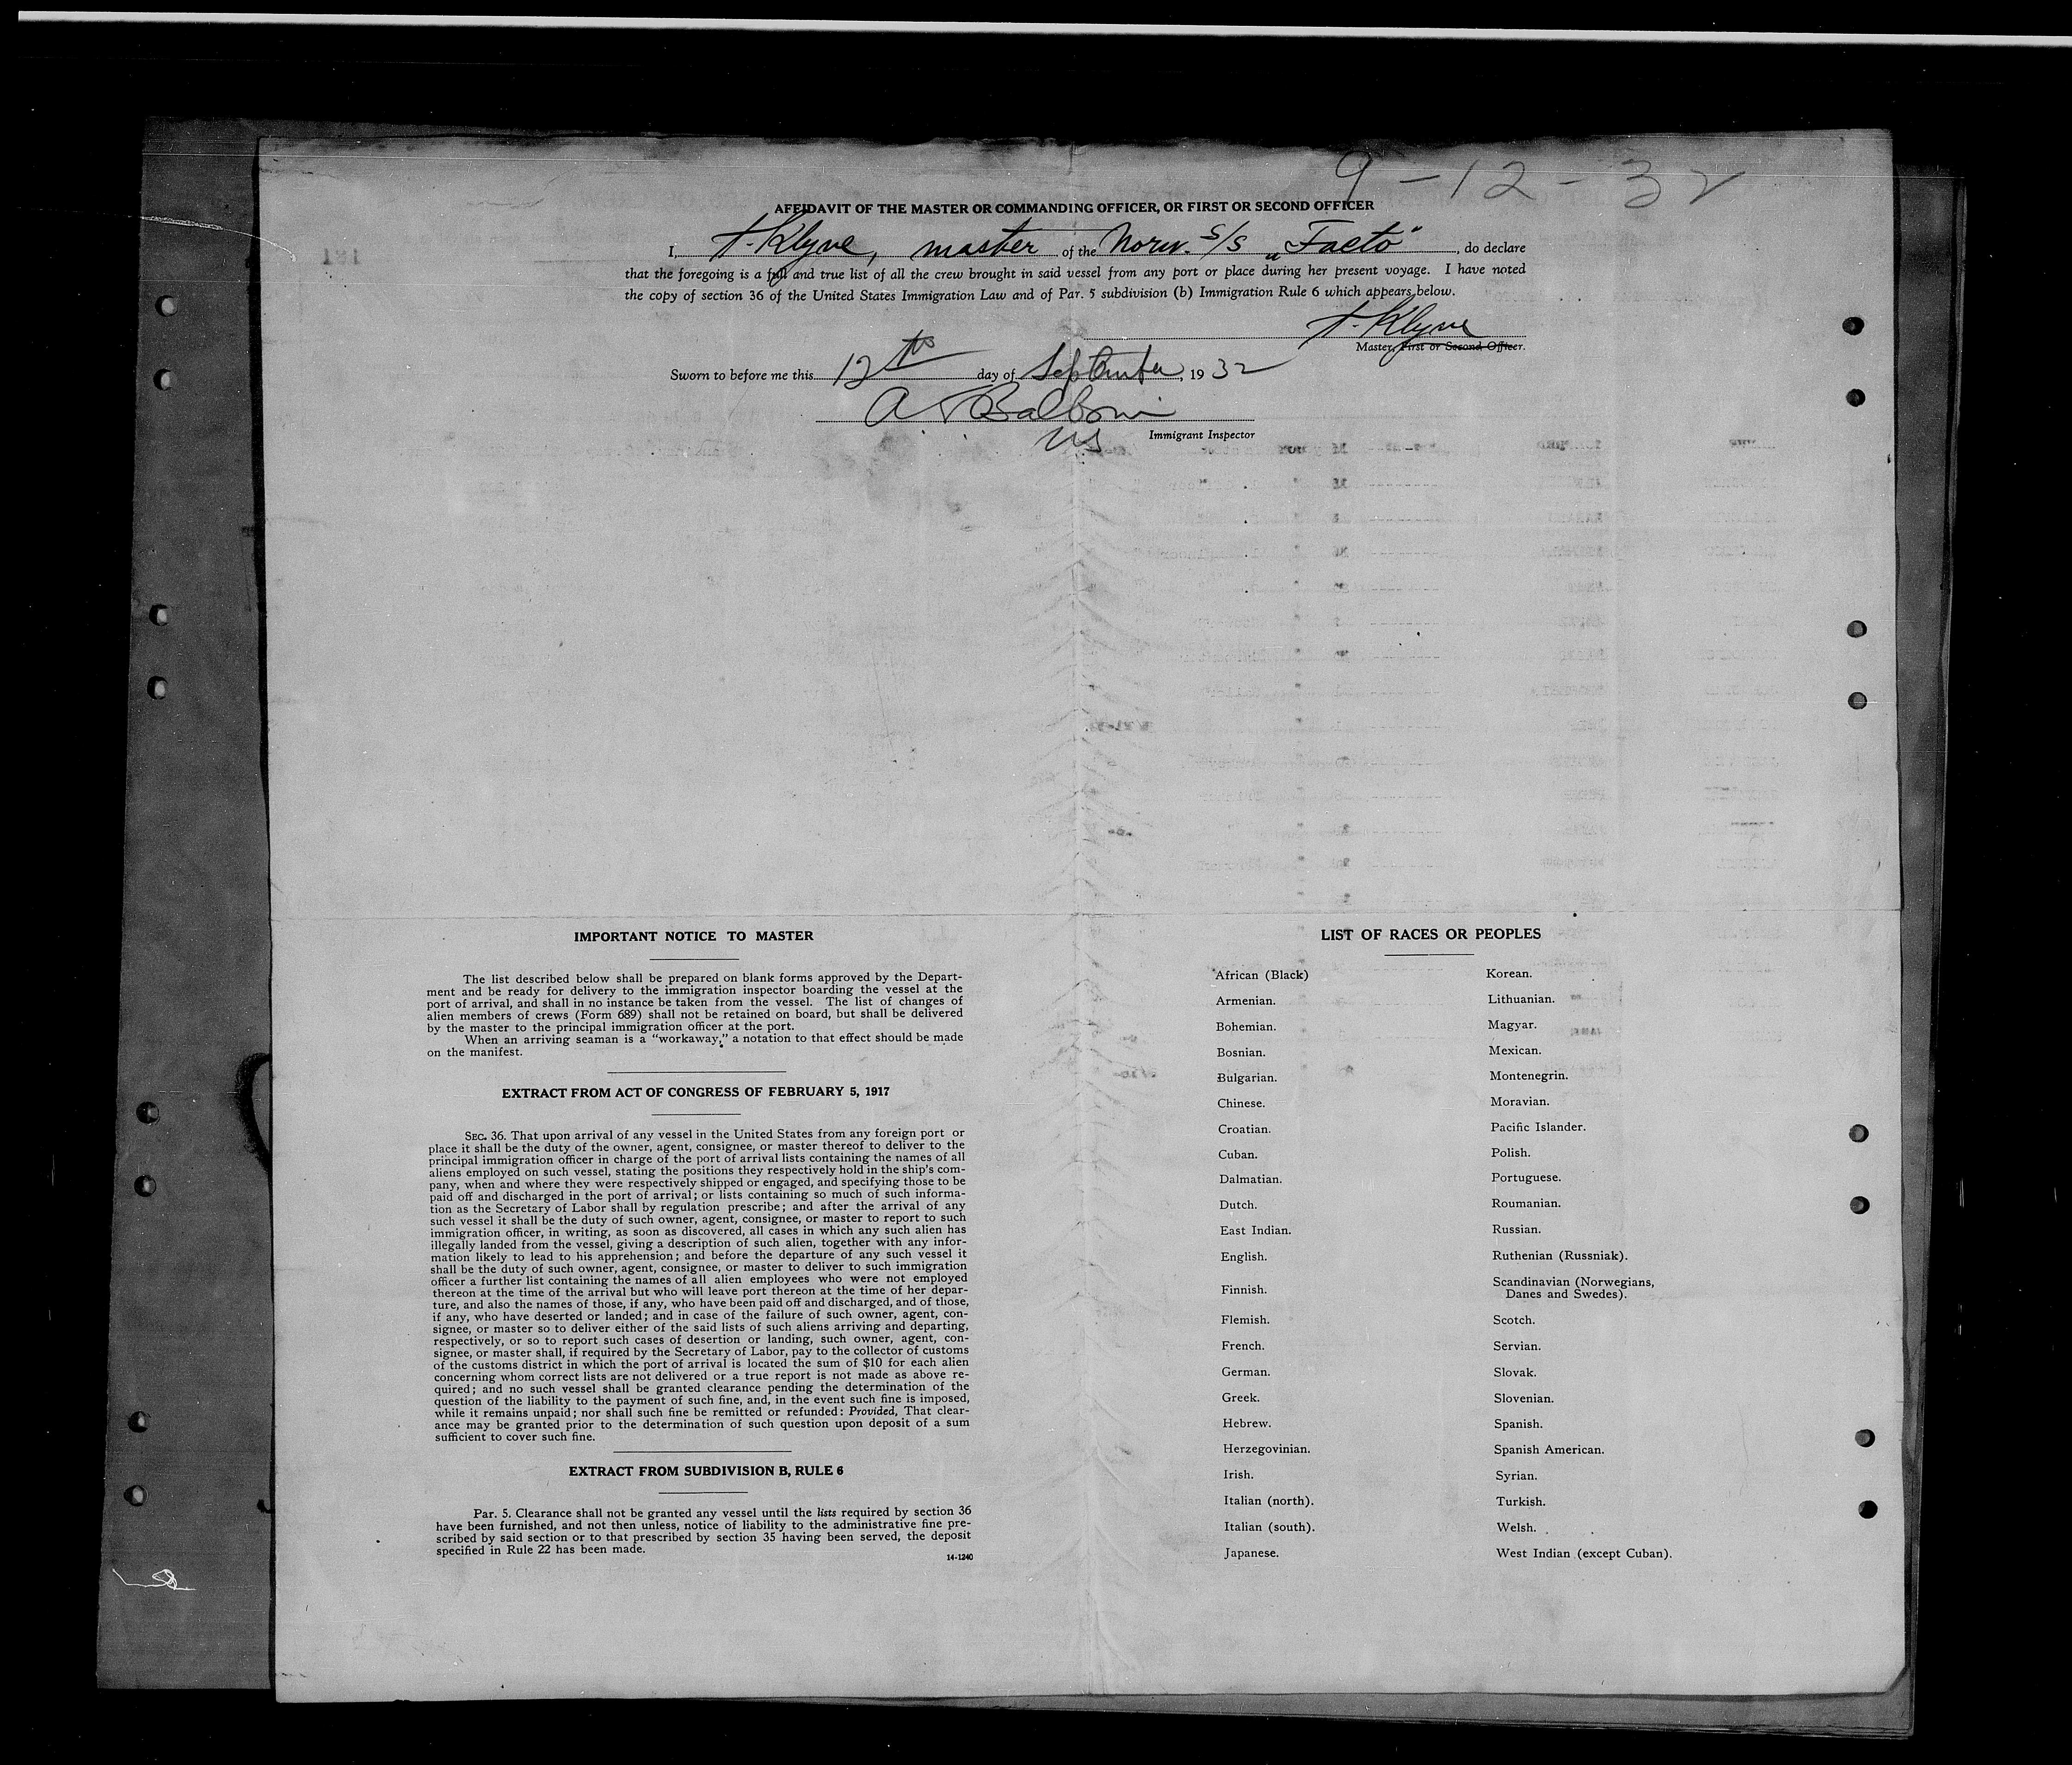 9-12-32
AFFIDAVIT OF THE MASTER OR COMMANDING OFFICER, OR FIRST OR SECOND OFFICER
I, T. Klyve, master of the Norw. S/S „Facto", do declare
that the foregoing is a full and true list of all the crew brought in said vessel from any port or place during her present voyage. I have noted
the copy of section 36 of the United States Immigration Law and of Par. 5 subdivision (b) Immigration Rule 6 which appears below.
T. Klyve
Master, First or Second Officer.
Sworn to before me this 12th day of September, 1932
US
Immigrant Inspector
IMPORTANT NOTICE TO MASTER
The list described below shall be prepared on blank forms approved by the Depart-
ment and be ready for delivery to the immigration inspector boarding the vessel at the
port of arrival, and shall in no instance be taken from the vessel. The list of changes of
alien members of crews (Form 689) shall not be retained on board, but shall be delivered
by the master to the principal immigration officer at the port.
When an arriving seaman is a “workaway,” a notation to that effect should be made
on the manifest.
EXTRACT FROM ACT OF CONGRESS OF FEBRUARY 5, 1917
SEC. 36. That upon arrival of any vessel in the United States from any foreign port or
place it shall be the duty of the owner, agent, consignee, or master thereof to deliver to the
principal immigration officer in charge of the port of arrival lists containing the names of all
aliens employed on such vessel, stating the positions they respectively hold in the ship's com-
pany, when and where they were respectively shipped or engaged, and specifying those to be
paid off and discharged in the port of arrival; or lists containing so much of such informa-
tion as the Secretary of Labor shall by regulation prescribe; and after the arrival of any
such vessel it shall be the duty of such owner, agent, consignee, or master to report to such
immigration officer, in writing, as soon as discovered, all cases in which any such alien has
illegally landed from the vessel, giving a description of such alien, together with any infor-
mation likely to lead to his apprehension; and before the departure of any such vessel it
shall be the duty of such owner, agent, consignee, or master to deliver to such immigration
officer a further list containing the names of all alien employees who were not employed
thereon at the time of the arrival but who will leave port thereon at the time of her depar-
ture, and also the names of those, if any, who have been paid off and discharged, and of those,
if any, who have deserted or landed; and in case of the failure of such owner, agent, con-
signee, or master so to deliver either of the said lists of such aliens arriving and departing,
respectively, or so to report such cases of desertion or landing, such owner, agent, con-
signee, or master shall, if required by the Secretary of Labor, pay to the collector of customs
of the customs district in which the port of arrival is located the sum of $10 for each alien
concerning whom correct lists are not delivered or a true report is not made as above re-
quired; and no such vessel shall be granted clearance pending the determination of the
question of the liability to the payment of such fine, and, in the event such fine is imposed,
while it remains unpaid; nor shall such fine be remitted or refunded: Provided, That clear-
ance may be granted prior to the determination of such question upon deposit of a sum
sufficient to cover such fine.
EXTRACT FROM SUBDIVISION B, RULE 6
Par. 5. Clearance shall not be granted any vessel until the lists required by section 36
have been furnished, and not then unless, notice of liability to the administrative fine pre-
scribed by said section or to that prescribed by section 35 having been served, the deposit
specified in Rule 22 has been made.
14-1240
LIST OF RACES OR PEOPLES
African (Black)
Armenian.
Bohemian.
Bosnian.
Bulgarian.
Chinese.
Croatian.
Cuban.
Dalmatian.
Dutch.
East Indian.
English.
Finnish.
Flemish.
French.
German.
Greek.
Hebrew.
Herzegovinian.
Irish.
Italian (north).
Italian (south).
Japanese.
Korean.
Lithuanian.
Magyar.
Mexican.
Montenegrin.
Moravian.
Pacific Islander.
Polish.
Portuguese.
Roumanian.
Russian.
Ruthenian (Russniak).
Scandinavian (Norwegians,
Danes and Swedes).
Scotch.
Servian.
Slovak.
Slovenian.
Spanish.
Spanish American.
Syrian.
Turkish.
Welsh.
West Indian (except Cuban).